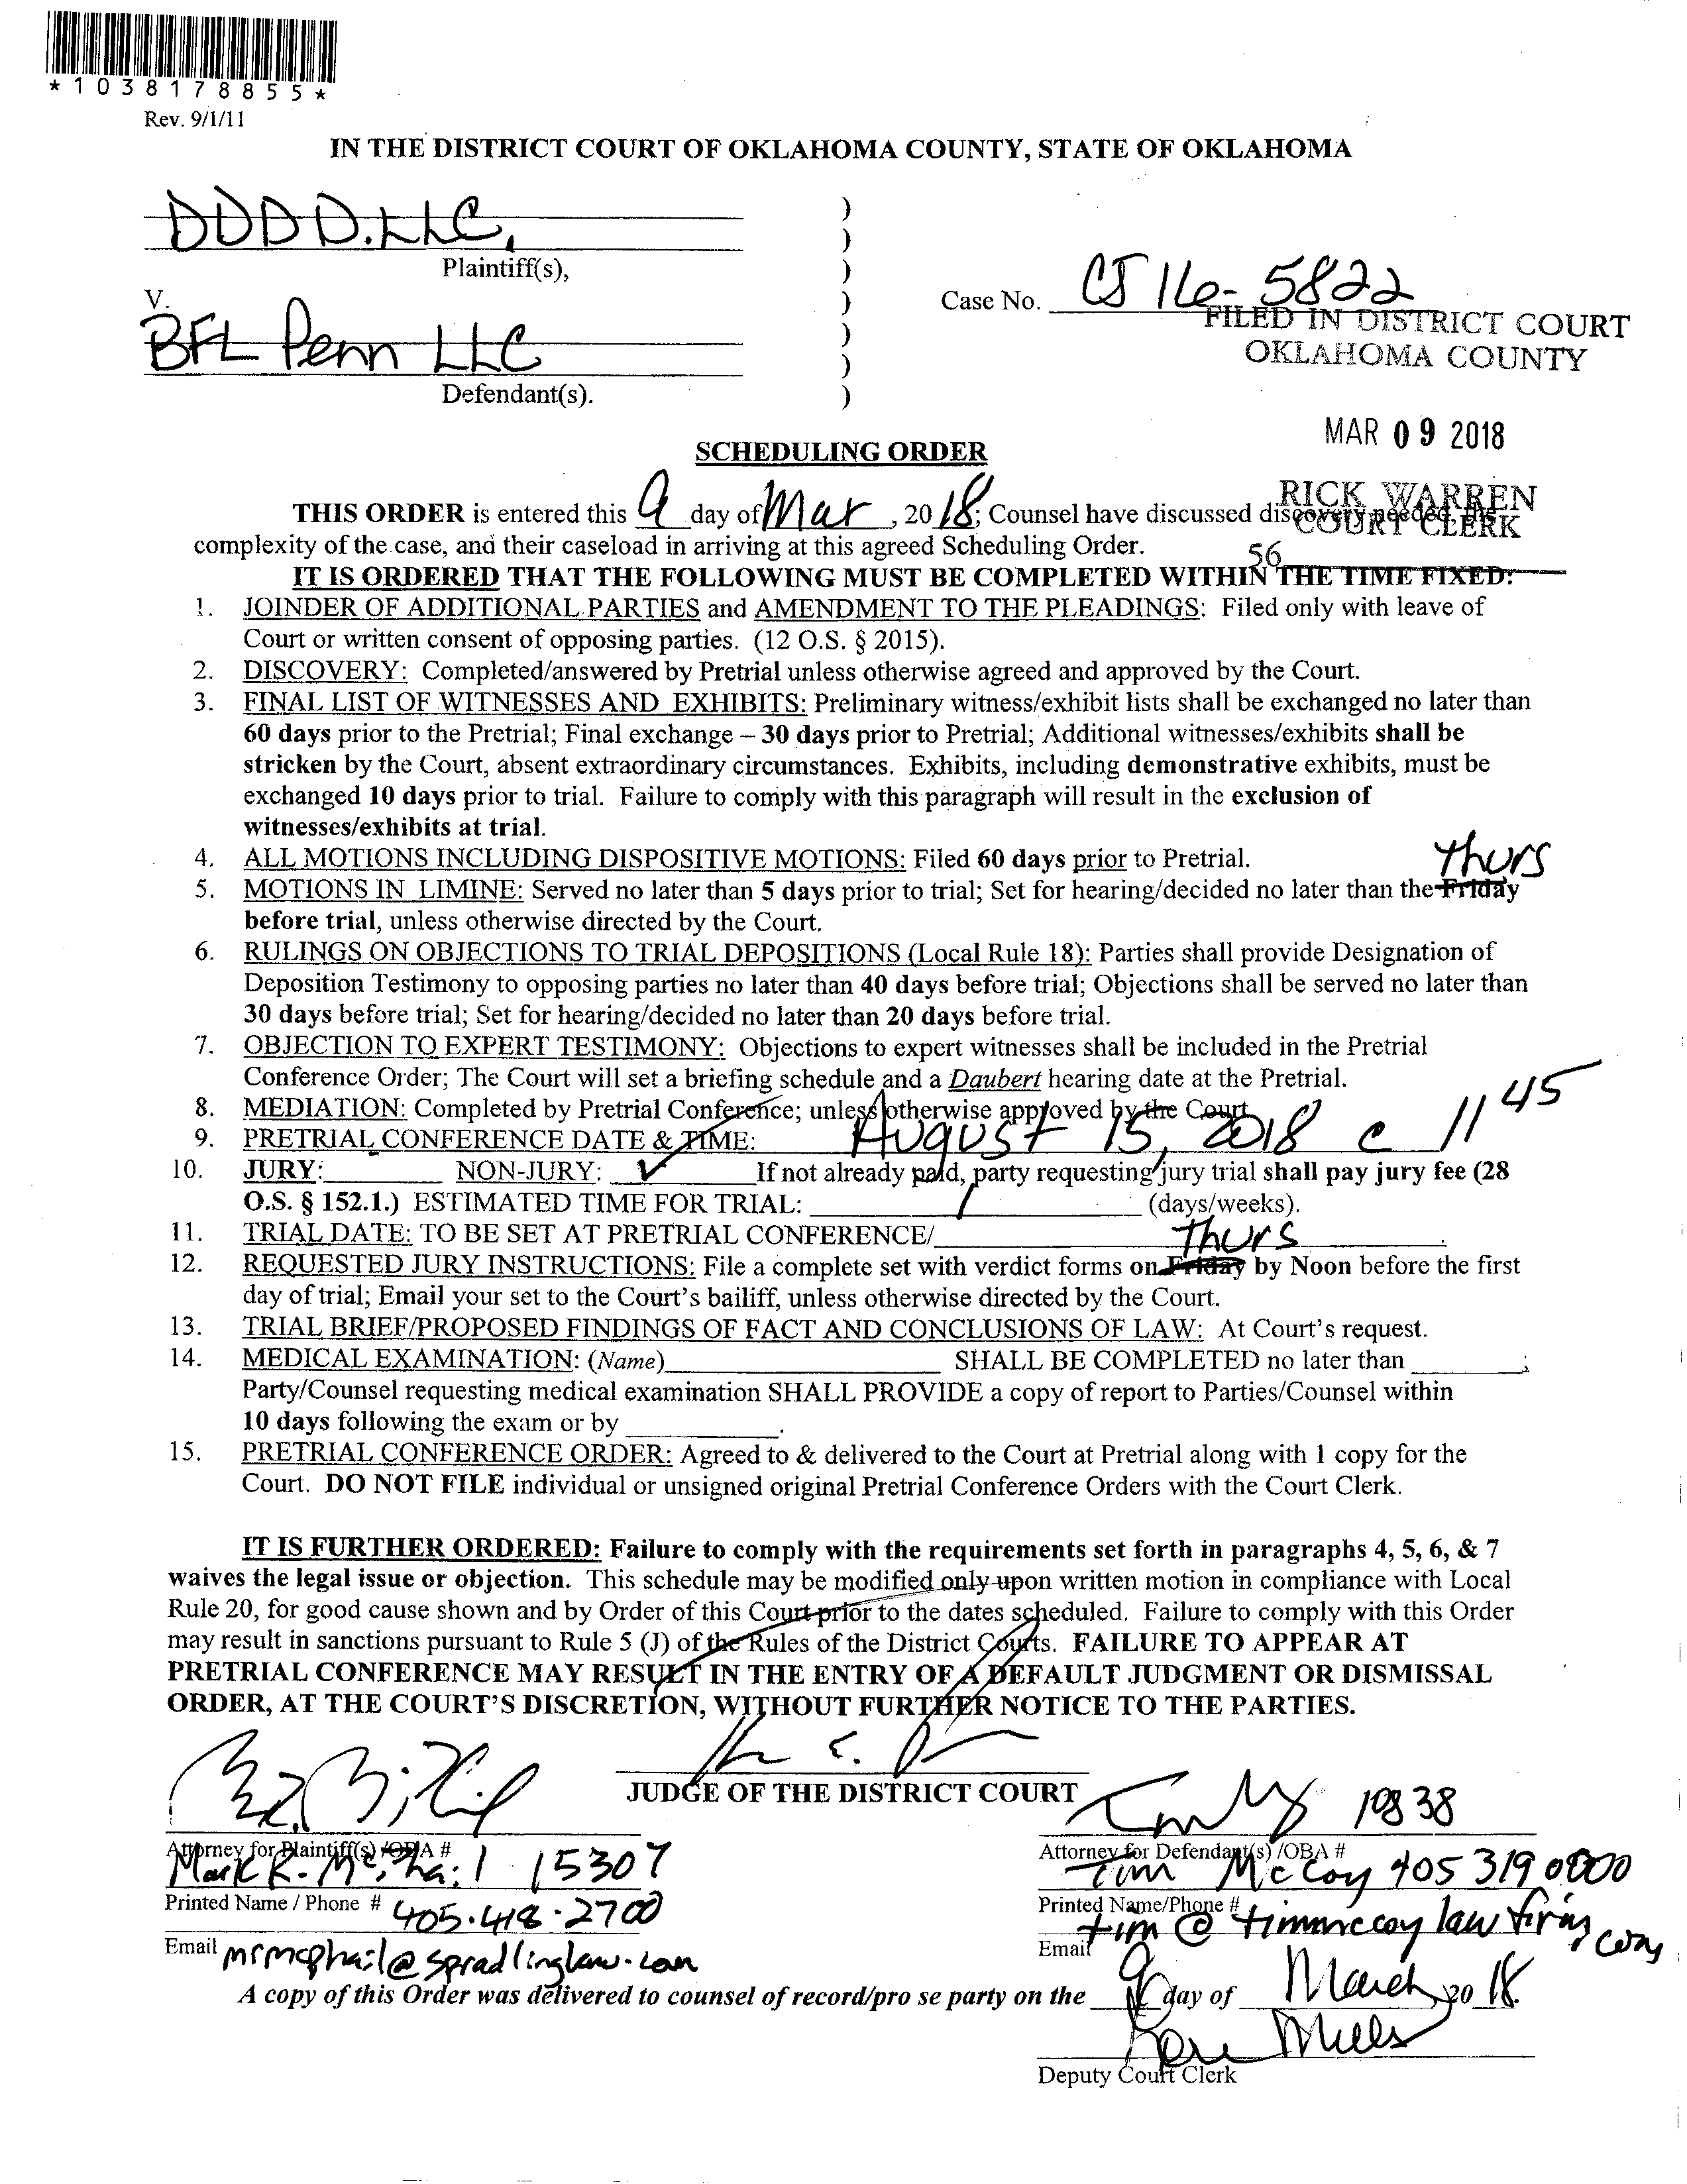 *1038178855*
Rev. 9/1/11
IN THE DISTRICT COURT OF OKLAHOMA COUNTY, STATE OF OKLAHOMA
DUDD.LLC,
Plaintiff(s),
V.
Case No. CJ 16-5822
FILED IN DISTRICT COURT
OKLAHOMA COUNTY
BFL Penn LLC
Defendant(s).
MAR 09 2018
SCHEDULING ORDER
RICK WARREN
COURT CLERK
THIS ORDER is entered this 9 day of Mar, 2018; Counsel have discussed discovery needed, the
complexity of the case, and their caseload in arriving at this agreed Scheduling Order.
56
IT IS ORDERED THAT THE FOLLOWING MUST BE COMPLETED WITHIN THE TIME FIXED:
1. JOINDER OF ADDITIONAL PARTIES and AMENDMENT TO THE PLEADINGS: Filed only with leave of
Court or written consent of opposing parties. (12 O.S. § 2015).
2. DISCOVERY: Completed/answered by Pretrial unless otherwise agreed and approved by the Court.
3. FINAL LIST OF WITNESSES AND EXHIBITS: Preliminary witness/exhibit lists shall be exchanged no later than
60 days prior to the Pretrial; Final exchange – 30 days prior to Pretrial; Additional witnesses/exhibits shall be
stricken by the Court, absent extraordinary circumstances. Exhibits, including demonstrative exhibits, must be
exchanged 10 days prior to trial. Failure to comply with this paragraph will result in the exclusion of
witnesses/exhibits at trial.
4. ALL MOTIONS INCLUDING DISPOSITIVE MOTIONS: Filed 60 days prior to Pretrial.
Thurs
5. MOTIONS IN LIMINE: Served no later than 5 days prior to trial; Set for hearing/decided no later than the Friday
before trial, unless otherwise directed by the Court.
6. RULINGS ON OBJECTIONS TO TRIAL DEPOSITIONS (Local Rule 18): Parties shall provide Designation of
Deposition Testimony to opposing parties no later than 40 days before trial; Objections shall be served no later than
30 days before trial; Set for hearing/decided no later than 20 days before trial.
7. OBJECTION TO EXPERT TESTIMONY: Objections to expert witnesses shall be included in the Pretrial
Conference Order; The Court will set a briefing schedule and a Daubert hearing date at the Pretrial.
8. MEDIATION: Completed by Pretrial Conference; unless otherwise approved by the Court
9. PRETRIAL CONFERENCE DATE & TIME: August 15, 2018 @ 11 45
10. JURY: NON-JURY: ✓ If not already paid, party requesting jury trial shall pay jury fee (28
O.S. § 152.1.) ESTIMATED TIME FOR TRIAL: 1 (days/weeks).
11. TRIAL DATE: TO BE SET AT PRETRIAL CONFERENCE/
Thurs
12. REQUESTED JURY INSTRUCTIONS: File a complete set with verdict forms on Friday by Noon before the first
day of trial; Email your set to the Court's bailiff, unless otherwise directed by the Court.
13. TRIAL BRIEF/PROPOSED FINDINGS OF FACT AND CONCLUSIONS OF LAW: At Court's request.
14. MEDICAL EXAMINATION: (Name) SHALL BE COMPLETED no later than ;
Party/Counsel requesting medical examination SHALL PROVIDE a copy of report to Parties/Counsel within
10 days following the exam or by .
15. PRETRIAL CONFERENCE ORDER: Agreed to & delivered to the Court at Pretrial along with 1 copy for the
Court. DO NOT FILE individual or unsigned original Pretrial Conference Orders with the Court Clerk.
IT IS FURTHER ORDERED: Failure to comply with the requirements set forth in paragraphs 4, 5, 6, & 7
waives the legal issue or objection. This schedule may be modified only upon written motion in compliance with Local
Rule 20, for good cause shown and by Order of this Court prior to the dates scheduled. Failure to comply with this Order
may result in sanctions pursuant to Rule 5 (J) of the Rules of the District Courts. FAILURE TO APPEAR AT
PRETRIAL CONFERENCE MAY RESULT IN THE ENTRY OF A DEFAULT JUDGMENT OR DISMISSAL
ORDER, AT THE COURT'S DISCRETION, WITHOUT FURTHER NOTICE TO THE PARTIES.
JUDGE OF THE DISTRICT COURT
10838
Attorney for Plaintiff(s) /OBA #
Mark R. McPhail 15307
Printed Name / Phone # 405.418.2700
Email mrmcphail@spradlinglaw.com
Attorney for Defendant(s) /OBA #
Tim McCoy 405 319 0000
Printed Name/Phone #
Email tim@timmccoylawfirm.com
A copy of this Order was delivered to counsel of record/pro se party on the 9 day of March, 2018.
Deputy Court Clerk